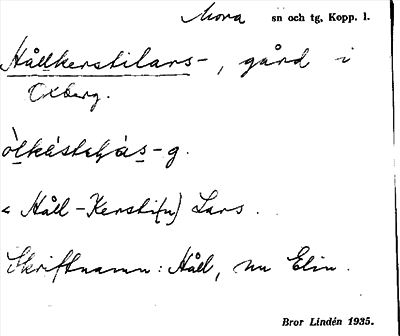 Mora sn och tg, Kopp. l.
Hållkerstilars-, gård i
Oxberg.
-g.
< Håll-Kersti(n) Lars.
Skriftnamn: Håll, nu Elin.
Bror Lindén 1935.